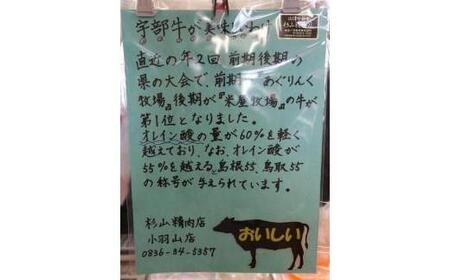 宇部牛が美味しいわけ
直近の年2回 前期後期の
県の大会で、前期『あぐりんく
牧場』後期が『米屋牧場』の牛が
第1位となりました。
オレイン酸の量が60%を軽く
越えており、なお、オレイン酸が
55%を越えると島根55、鳥取55
の称号が与えられています。
杉山精肉店
小羽山店
0836-34-5357
おいしい